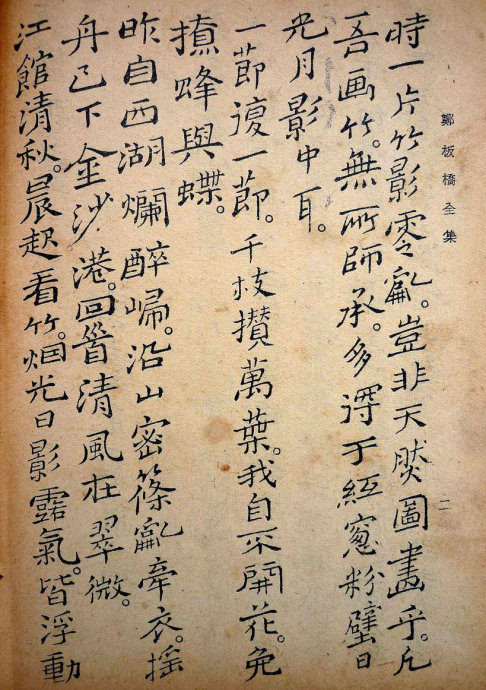 鄭板橋全集
二
時一片竹影零亂。豈非天然圖畫乎。凡
吾画竹。無所師承。多淂于紙窓粉壁日
光月影中耳。
一莭復一莭。千枝攢萬葉。我自不開花。免
撩蜂與蝶。
昨自西湖爛醉歸。沿山密篠亂牽衣。搖
舟已下金沙港。回首清風在翠微。
江館清秋。晨起看竹。烟光日影露氣。皆浮動